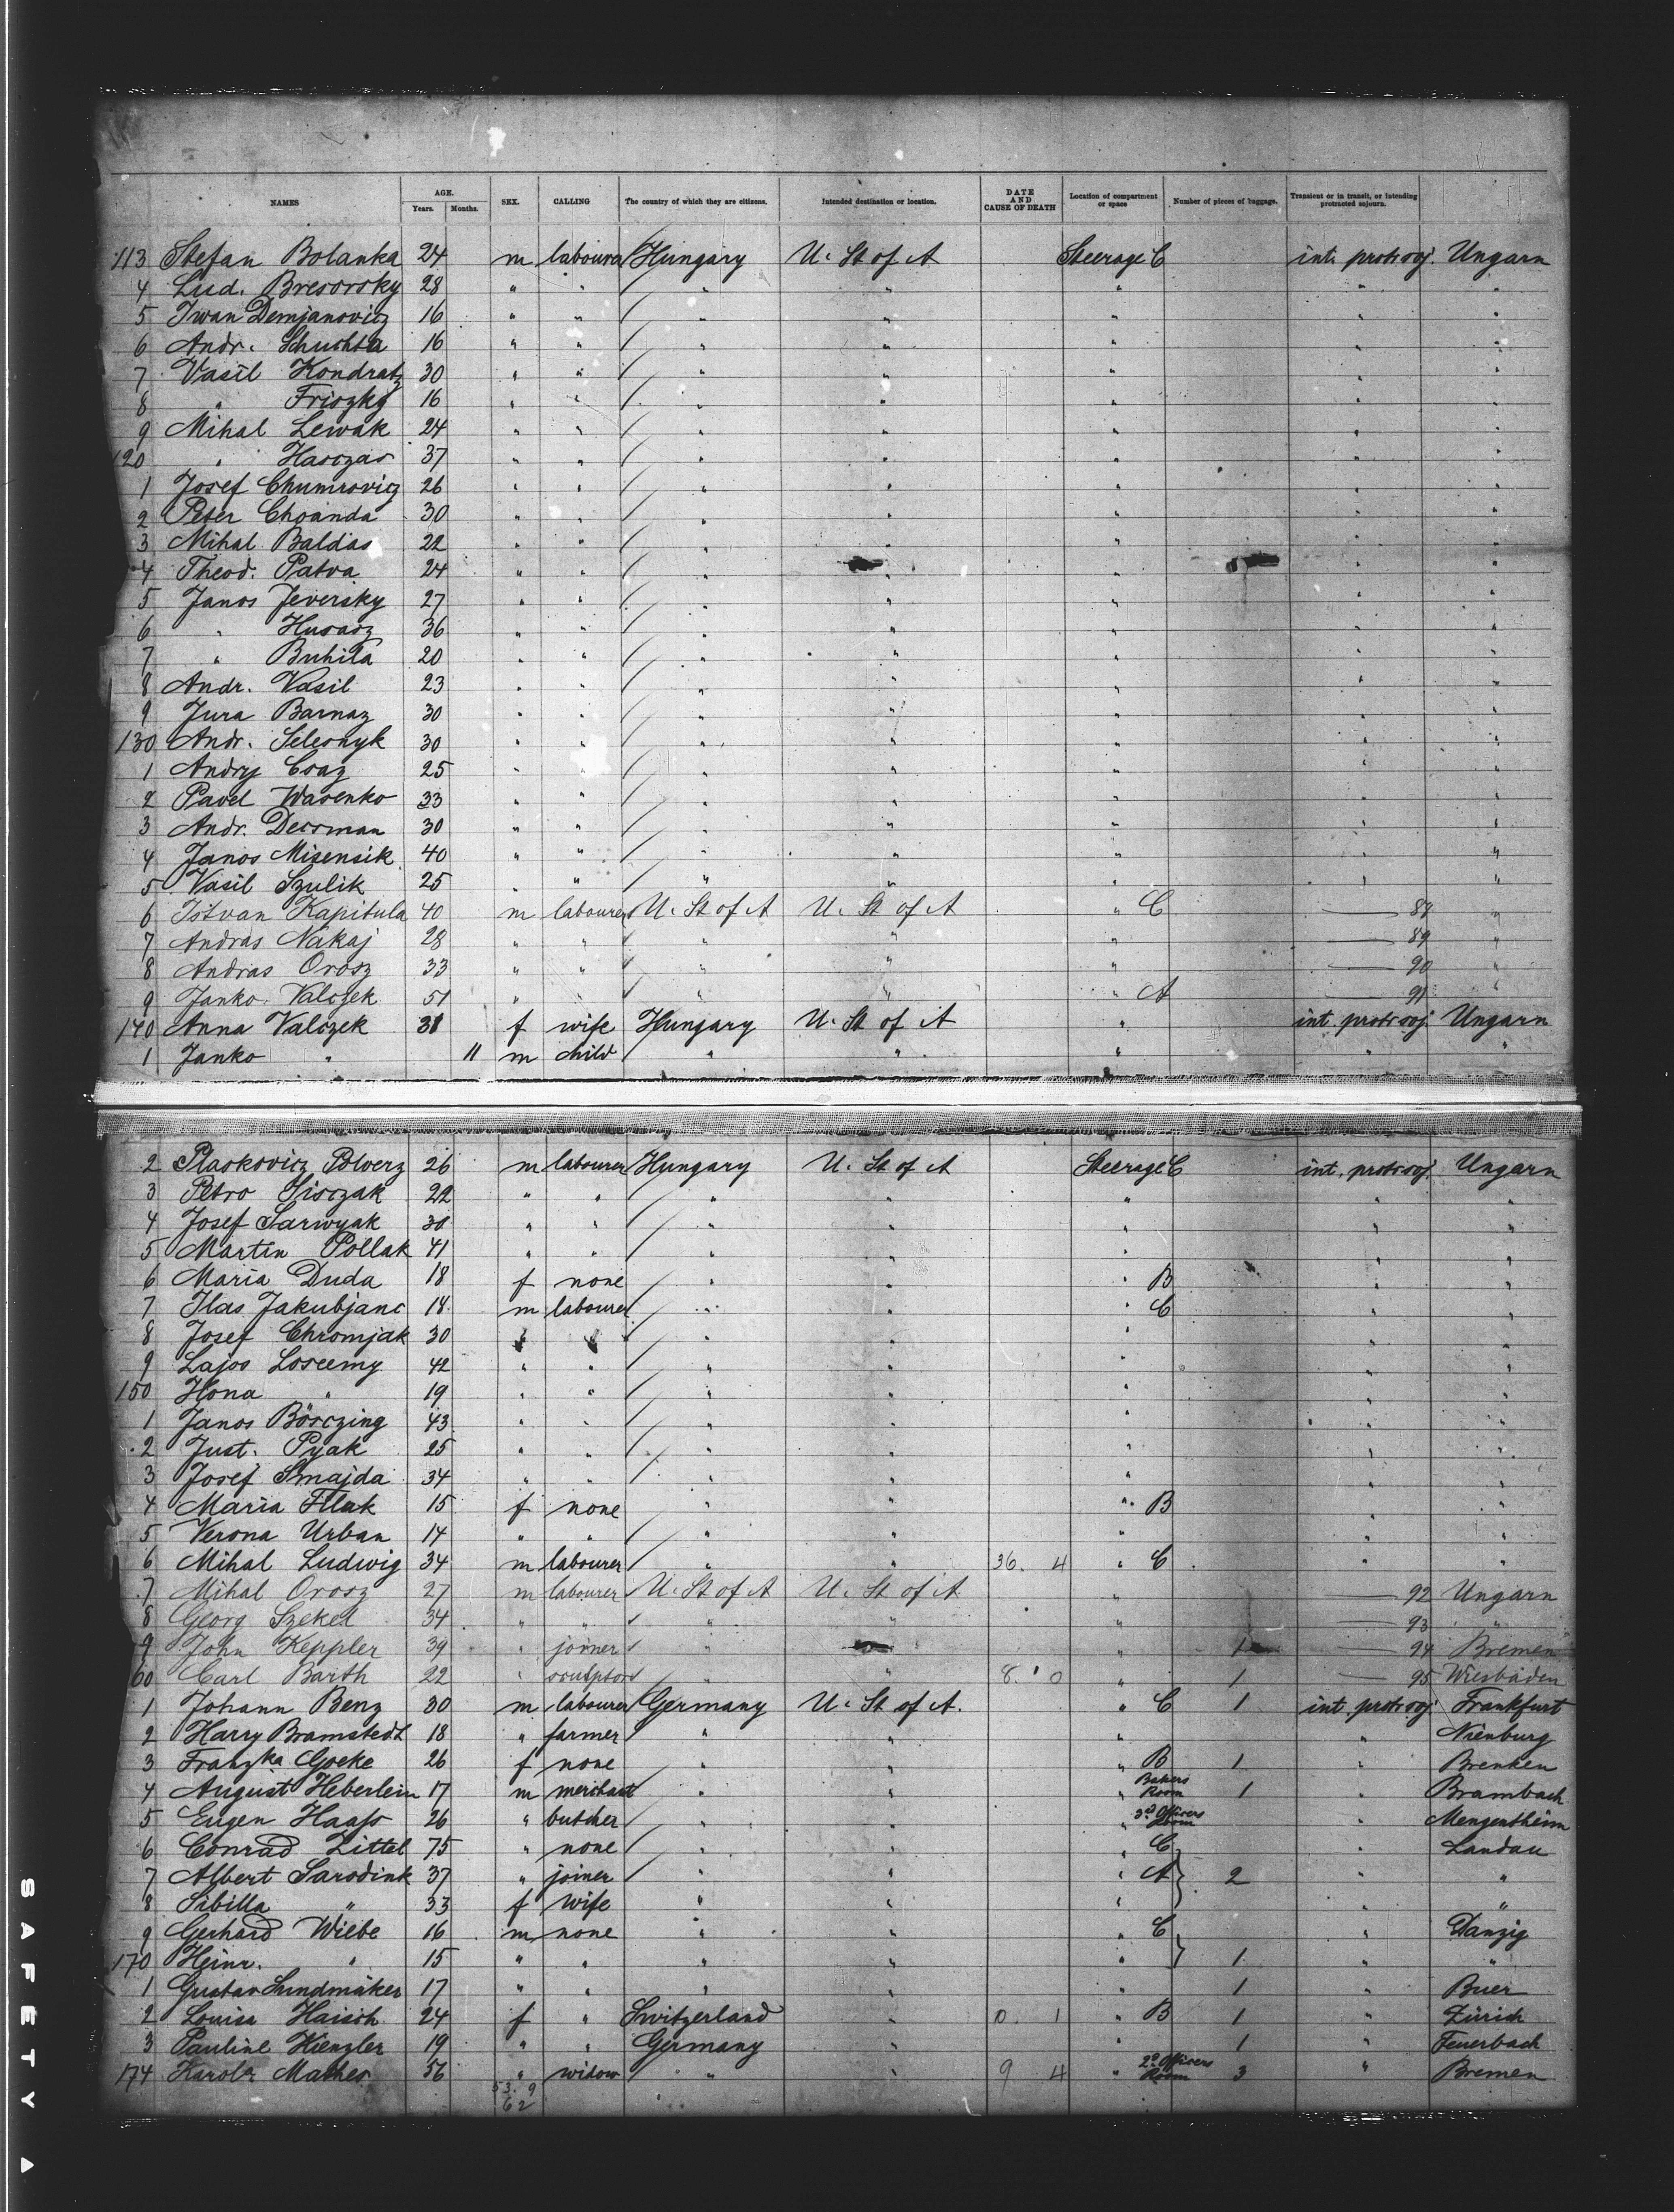 NAMES AGE. Years. Months. SEX. CALLING The country of which they are citizens. Intended destination or location. DATE AND CAUSE OF DEATH Location of compartment or space Number of pieces of baggage. Transient or in transit, or intending protracted sojourn.
113 Stefan Bolanka 24 m laboura Hungary U. St of A Steerage C int. protr soj. Ungarn
4 Lud. Bresovsky 28 " " " " " " "
5 Iwan Demjanovicz 16 " " " " " " "
6 Andr. Schuchta 16 " " " " " " "
7 Vasil Kondratz 30 " " " " " " "
8 " Friszky 16 " " " " " " "
9 Mihal Lewak 24 " " " " " " "
120 " Hasczas 37 " " " " " " "
1 Josef Chumrovicz 26 " " " " " " "
2 Peter Choanda 30 " " " " " " "
3 Mihal Baldas 22 " " " " " " "
4 Theod. Patva 24 " " " " " " "
5 Janos Jeversky 27 " " " " " " "
6 " Husasz 36 " " " " " " "
7 " Buhila 20 " " " " " " "
8 Andr. Vasil 23 " " " " " " "
9 Jura Barnaz 30 " " " " " " "
130 Andr. Selesnyk 30 " " " " " " "
1 Andry Csaz 25 " " " " " " "
2 Pavel Wasenko 33 " " " " " " "
3 Andr. Decsman 30 " " " " " " "
4 Janos Misensik 40 " " " " " " "
5 Vasil Szulik 25 " " " " " " "
6 Istvan Kapitula 40 m labourer U. St of A U. St of A " C 88 "
7 Andras Nakaj 28 " " " " " 89 "
8 Andras Orosz 33 " " " " " 90 "
9 Janko Valczek 51 " " " " " A 91 "
140 Anna Valczek 31 f wife Hungary U. St of A " int. protr soj. Ungarn
1 Janko " 11 m child " " " " "
2 Plaskovicz Polverz 26 m labourer Hungary U. St of A Steerage C int. protr soj. Ungarn
3 Petro Sisczak 22 " " " " " " "
4 Josef Sarwyak 30 " " " " " " "
5 Martin Pollak 41 " " " " " " "
6 Maria Duda 18 f none " " " B " "
7 Ilas Jakubjanc 18 m labourer " " " C " "
8 Josef Chromjak 30 " " " " " " "
9 Lajos Loscemy 42 " " " " " " "
150 Ilona " 19 " " " " " " "
1 Janos Börczing 43 " " " " " " "
2 Just. Pyak 25 " " " " " " "
3 Josef Smajda 34 " " " " " " "
4 Maria Filak 15 f none " " " B " "
5 Verona Urban 14 " " " " " " "
6 Mihal Ludwig 34 m labourer " " 36. 4 " C " "
7 Mihal Orosz 27 m labourer U. St of A U. St of A " 92 Ungarn
8 Georg Szekel 34 " " " " " 93 "
9 John Keppler 39 " joiner " " " 1 94 Bremen
60 Carl Barth 22 " sculptor " " 8. 0 " 1 95 Wiesbaden
1 Johann Benz 30 m labourer Germany U. St of A. " C 1 int. protr soj. Frankfurt
2 Harry Bramstedt 18 " farmer " " " " Nienburg
3 Franzka Goeke 26 f none " " " B 1 " Brenken
4 August Heberlein 17 m merchant " " " Bakers Room 1 " Brambach
5 Eugen Haafs 26 " butcher " " " 3d Officers Room " Mengentheim
6 Conrad Zittel 75 " none " " " C " Landau
7 Albert Sarodink 37 " joiner " " " A } 2 " "
8 Sibilla " 33 f wife " " " "
9 Gerhard Wiebe 16 m none " " " C " Danzig
170 Heinr. " 15 " " " " " } 1 " "
1 Gustav Sundmäker 17 " " " " " 1 " Buer
2 Louisa Haisch 24 f " Switzerland " 10. 1 " B 1 " Zürich
3 Pauline Kienzler 19 " " Germany " " 1 " Feuerbach
174 Karola Mathes 56 " widow " " 9 4 " 2d Officers Room 3 " Bremen
53. 9
62
SAFETY A